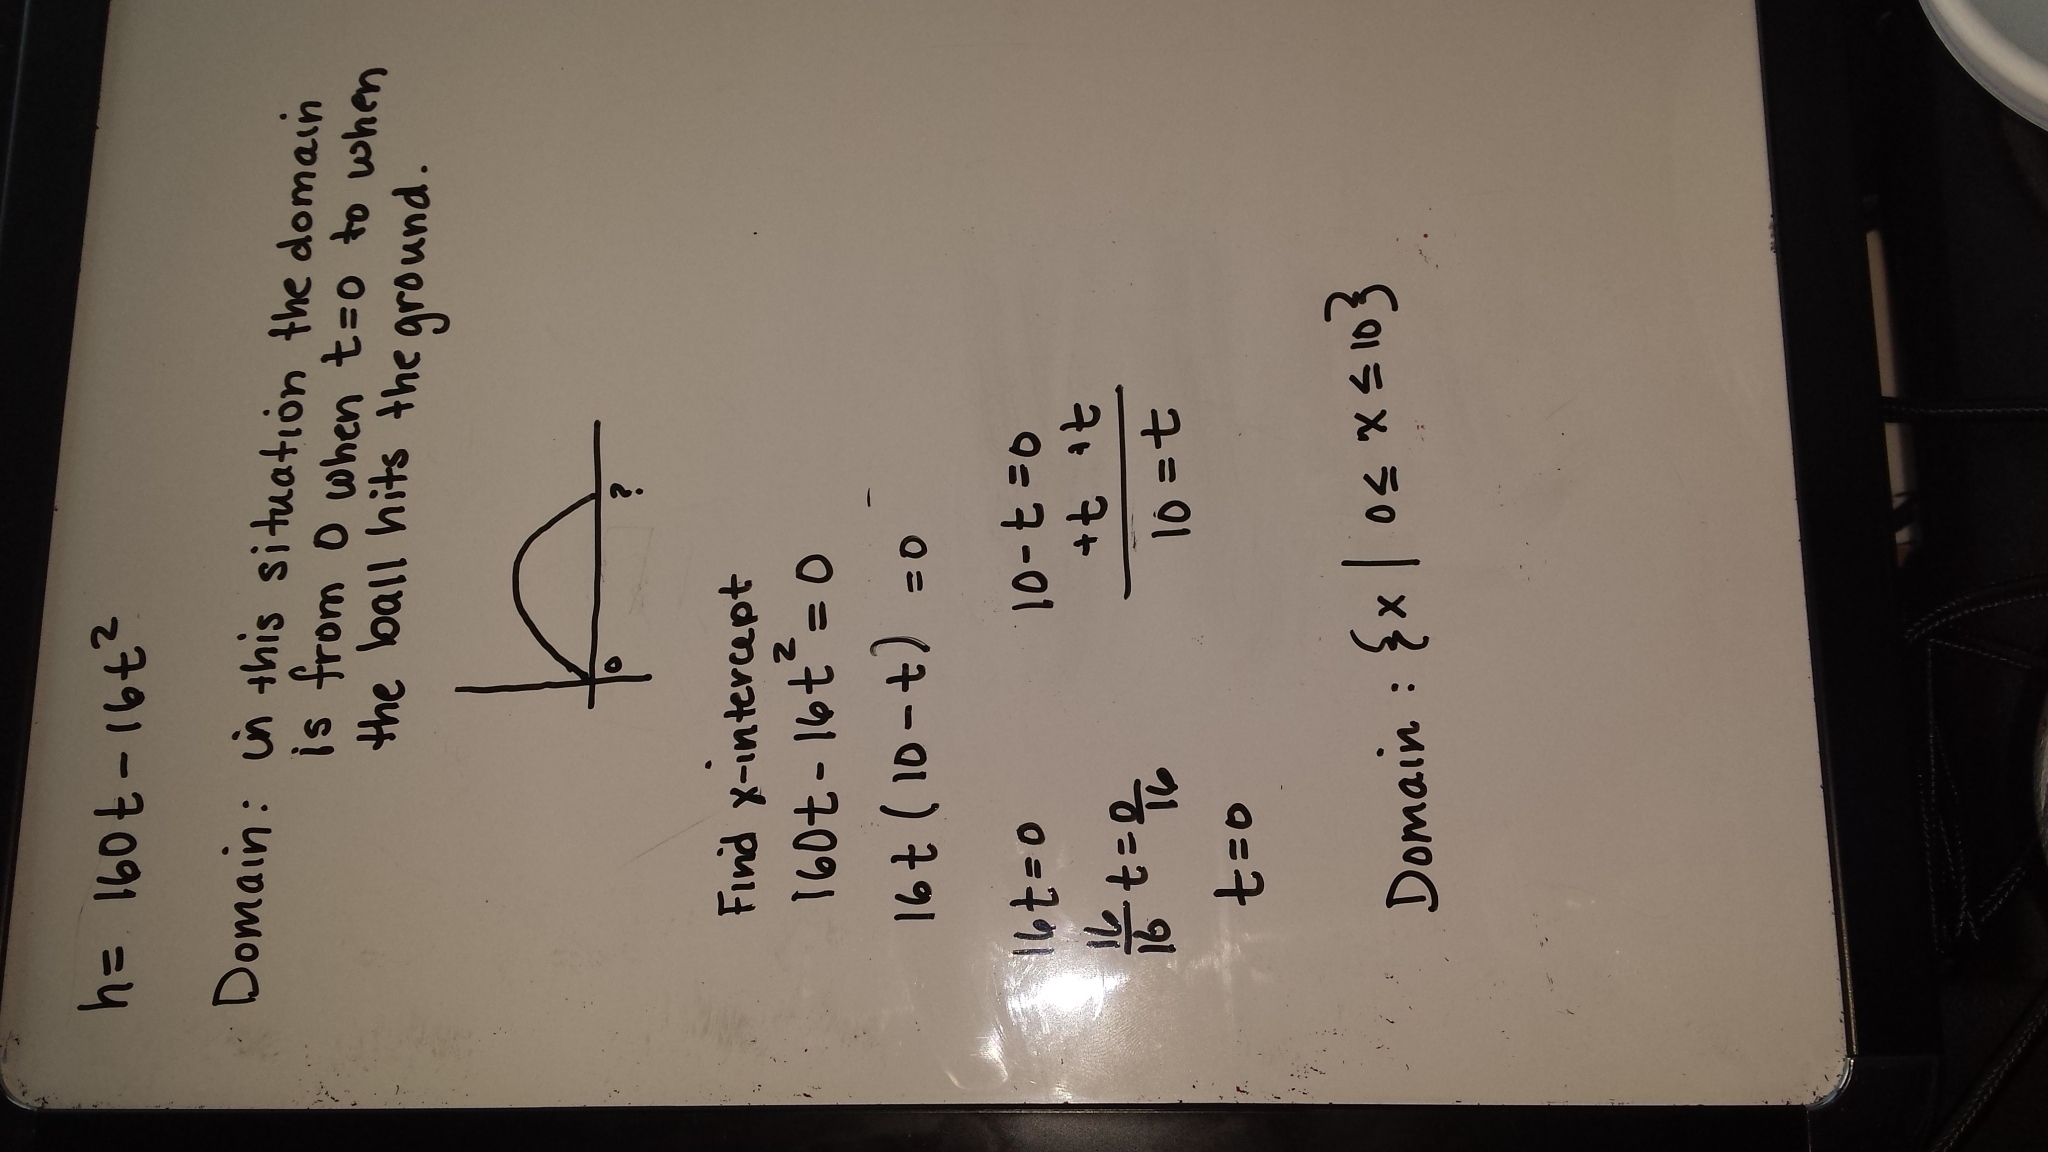 h = 160t - 16t²
Domain: in this situation the domain
is from 0 when t=0 to when
the ball hits the ground.
0 ?
Find x-intercept
160t - 16t² = 0
16t (10 - t) = 0
16t = 0 10 - t = 0
16/16 t = 0/16 +t +t
t = 0 10 = t
Domain : {x | 0 ≤ x ≤ 10}